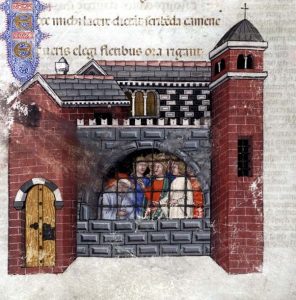 ce michi lacere dictāt scribēda camene
t ueris elegi fletibus ora rigant